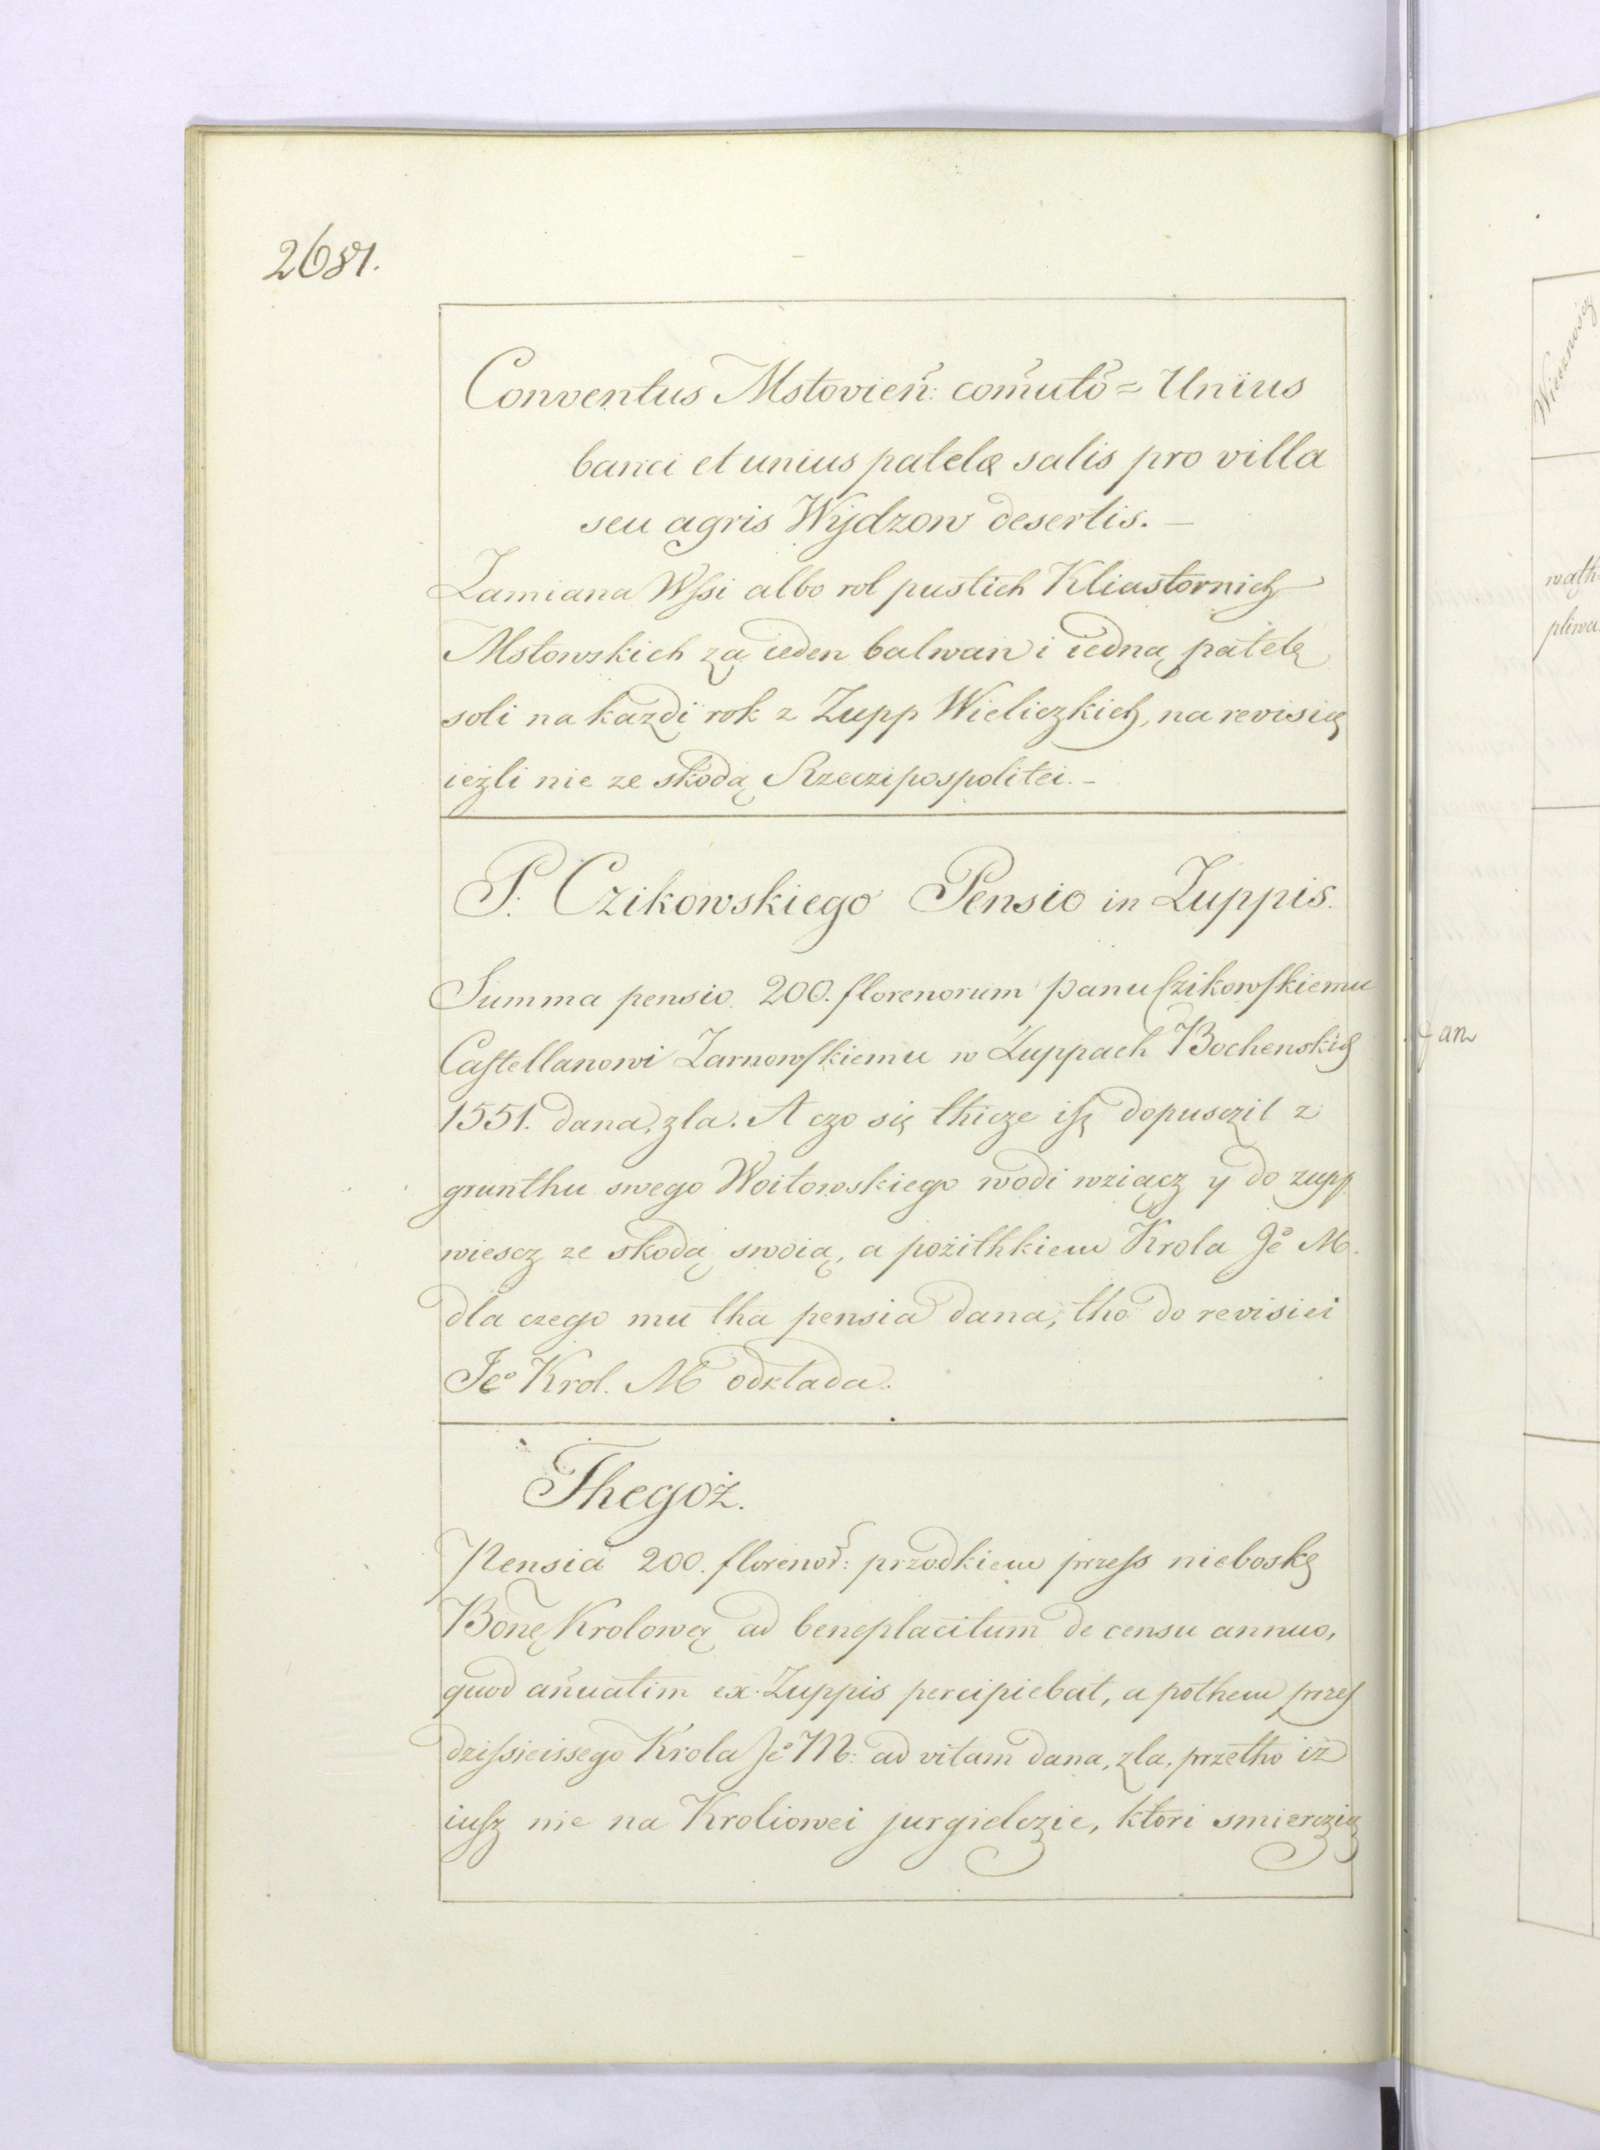 2681.
Conventus Mstovień: comuto = Unius
banci et unius patelæ salis pro villa
seu agris Wÿdzow desertis. —
Zamiana Wssi albo rol pustich Kliastornich
Mstowskich zą ieden balwan i iedną patelę
soli na kazdi rok z Zupp Wieliczkich, na revisią
ieżli nie ze skodą Rzeczipospolitei. —
P. Czikowskiego Pensio in Zuppis.
Summa pensio 200. florenorum panu Czikowskiemu
Castellanowi Zarnowskiemu w Zuppach Bochenskich
1551. dana, zła. A czo się thicze isz dopuscził z
grunthu swego Woitowskiego wodi wziącz y do zupp
wiescz ze skodą swoią, a pożithkiem Krola Jeº M.
dla czego mu tha pensia dana, tho do revisiei
Jeº Krol. M odkłada.
Thegoż.
Pensia 200. florenor: przodkiem przess nieboskę
Bonę Krolową ad beneplacitum de censu annuo,
quod anuatim ex Zuppis percipiebat, a pothem przes
dzissieissego Krola Jeº M: ad vitam dana, zła, przetho iż
iusz nie na Kroliowei jurgielczie, ktori smierczią
Jan
Wieczności
wath
pliwa